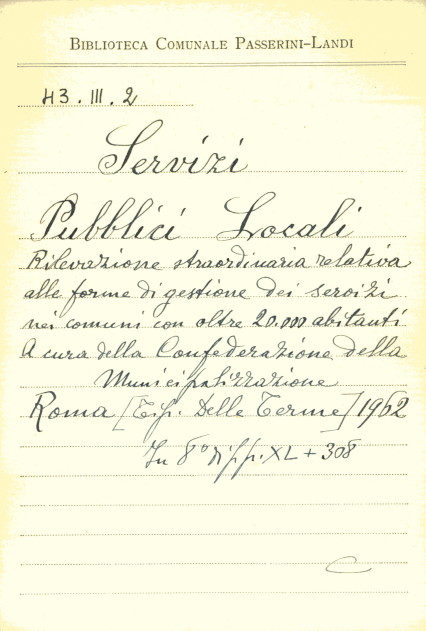 BIBLIOTECA COMUNALE PASSERINI-LANDI
43.III.2
Servizi
Pubblici Locali
Rilevazione straordinaria relativa
alle forme di gestione dei servizi
nei comuni con oltre 20.000 abitanti
A cura della Confederazione della
Municipalizzazione
Roma [Tip. Delle Terme] 1962
In 8° di pp. XL + 308